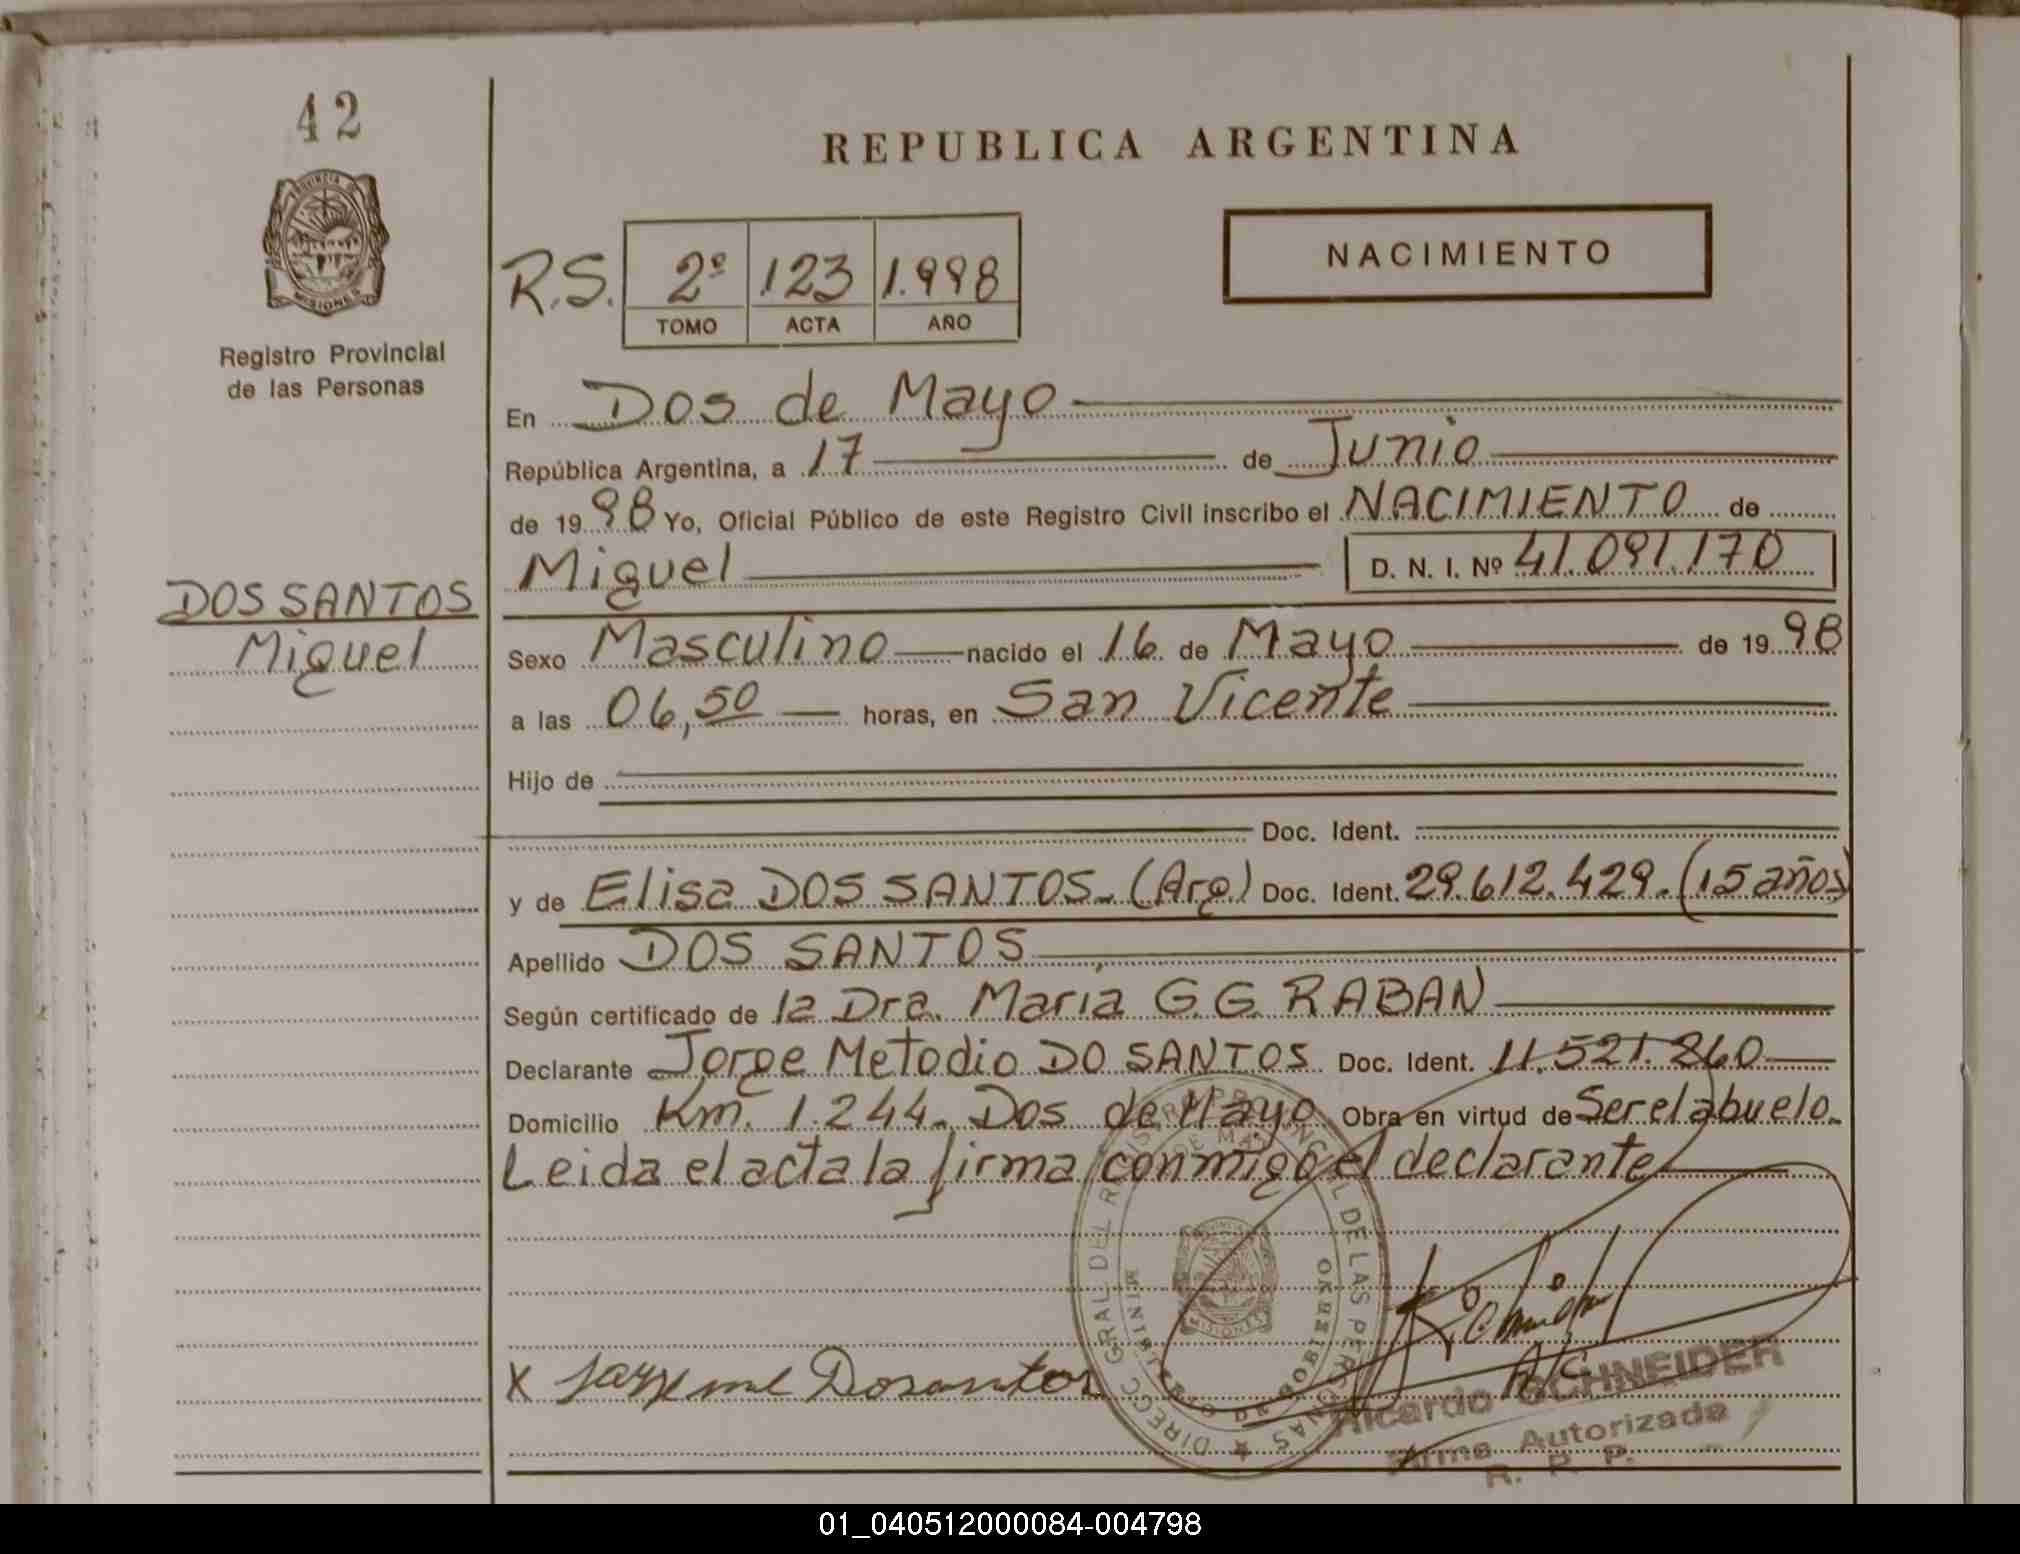 42
PROVINCIA DE
MISIONES
Registro Provincial
de las Personas
DOS SANTOS
Miguel
REPUBLICA ARGENTINA
NACIMIENTO
R.S. 2º 123 1.998
TOMO ACTA AÑO
En Dos de Mayo
República Argentina, a 17 de Junio
de 1998 Yo, Oficial Público de este Registro Civil inscribo el NACIMIENTO de
Miguel D. N. I. Nº 41.091.170
Sexo Masculino nacido el 16 de Mayo de 1998
a las 06,50 horas, en San Vicente
Hijo de
Doc. Ident.
y de Elisa DOS SANTOS.- (Arg.) Doc. Ident. 29.612.429.(15 años)
Apellido DOS SANTOS
Según certificado de la Dra. María G.G. RABAN
Declarante Jorge Metodio DO SANTOS Doc. Ident. 11.521.260
Domicilio Km. 1.244. Dos de Mayo Obra en virtud de Ser el abuelo.
Leida el acta la firma conmigo el declarante
DIRECC. GRAL DEL REGISTRO PROVINCIAL DE LAS PERSONAS
MINISTERIO DE GOBIERNO
MISIONES
X
Ricardo SCHNEIDER
Firma Autorizada
R. P. P.
01_040512000084-004798